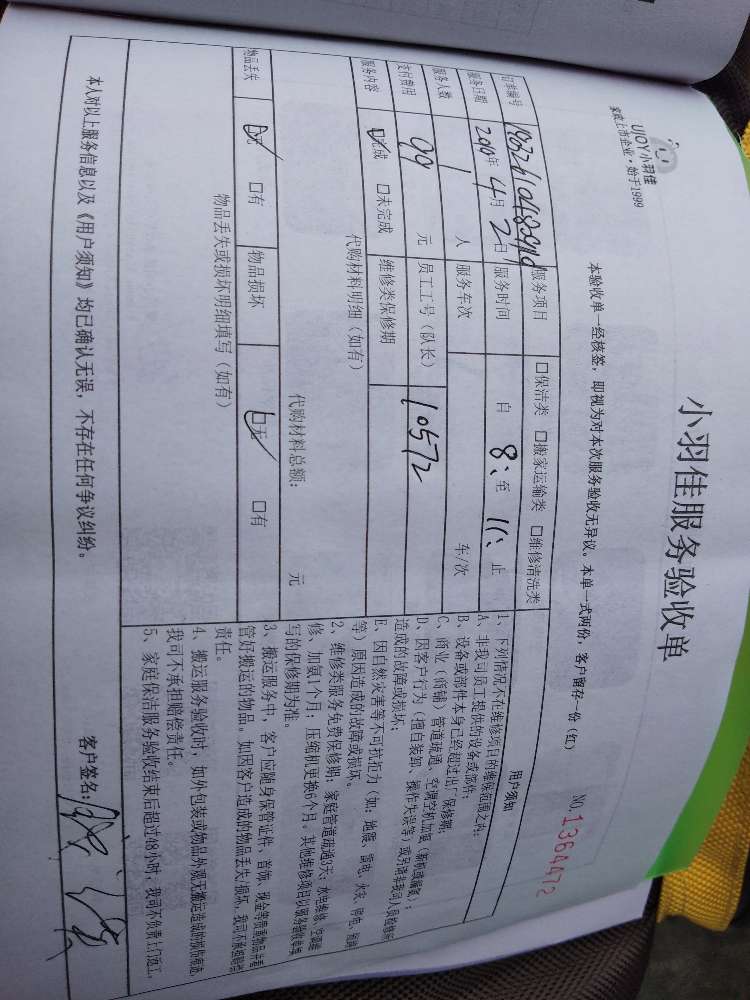 UJOY小羽佳
家政上市企业·始于1999
小羽佳服务验收单
本验收单一经核签，即视为对本次服务验收无异议。本单一式两份，客户留存一份（红）
NO.1364472
订单编号
服务项目 口保洁类 口搬家运输类 口维修清洗类
服务日期 年 4月 2日 服务时间 自 8: 至 11: 止
服务人数 1 人 服务车次 车/次
支付费用 99 元 员工工号（队长） 10572
服务内容 口完成 口未完成 维修类保修期
代购材料明细（如有）
代购材料总额： 元
物品丢失 口无 口有 物品损坏 口无 口有
物品丢失或损坏明细填写（如有）
用户须知
1、下列情况不在维修项目的维保范围之内：
A、非我司员工提供的设备或部件；
B、设备或部件本身已经超过出厂保修期；
C、商业（商铺）管道疏通、空调空机加氨（新机或漏氨）；
D、因客户行为（擅自装卸、操作失误等）或另请非我司人员检修所
造成的故障或损坏；
E、因自然灾害等不可抗拒力（如：地震、雷电、火灾、停电、
等）原因造成的故障或损坏。
2、维修类服务免费保修期：家庭管道疏通3天；水电维修、空调维
修、加氨1个月；压缩机更换6个月。其他维修项目以服务验收单填
写的保修期为准。
3、搬运服务中，客户应随身保管证件、首饰、现金等贵重物品并看
管好搬运的物品。如因客户造成的物品丢失/损坏，我司不承担赔偿
责任。
4、搬运服务验收时，如外包装或物品外观无搬运造成的损伤痕迹，
我司可不承担赔偿责任。
5、家庭保洁服务验收结束后超过48小时，我司不负责上门返工。
本人对以上服务信息以及《用户须知》均已确认无误，不存在任何争议纠纷。
客户签名：